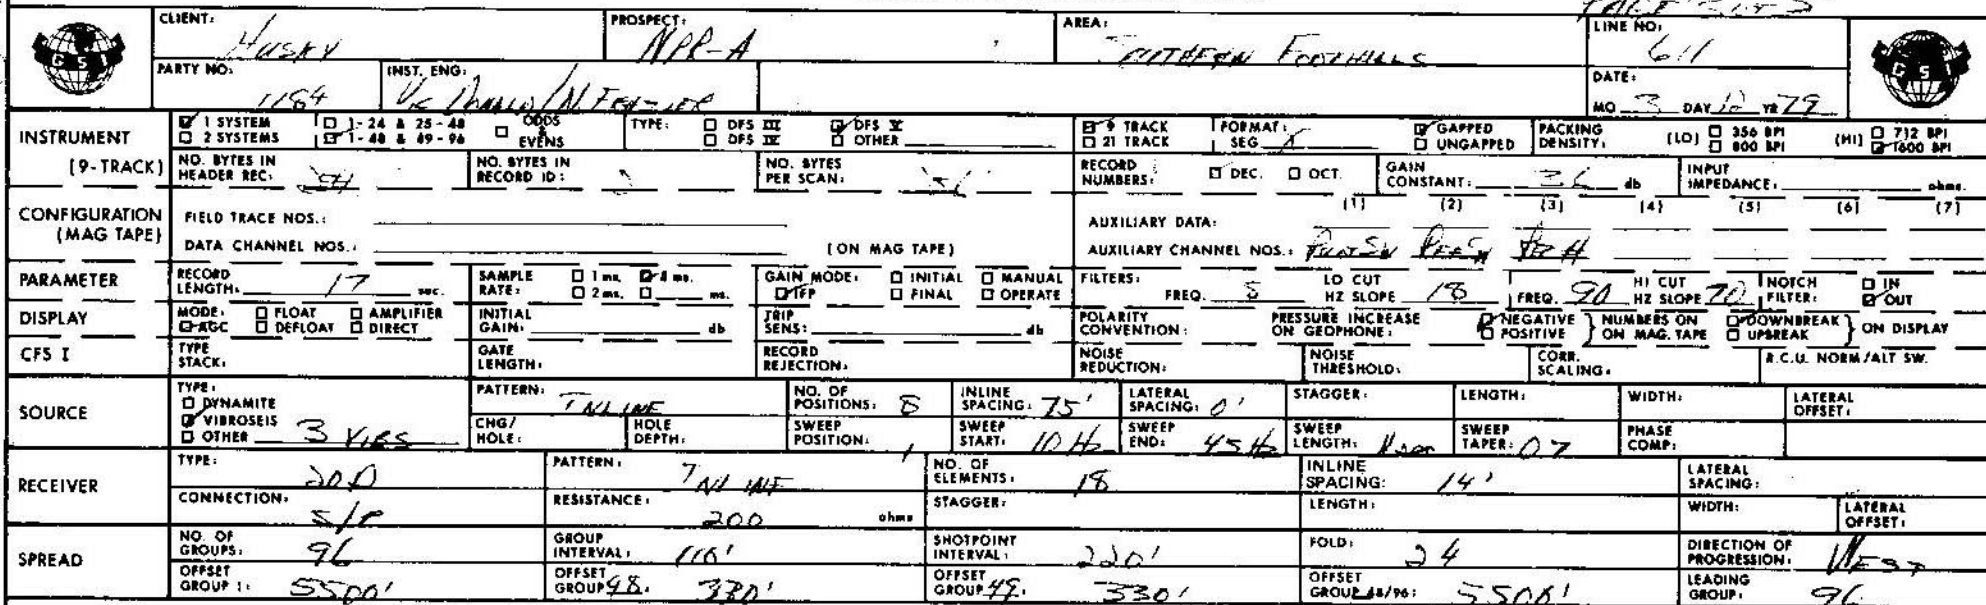 CLIENT: HUSKY PROSPECT: NPR-A AREA: FOOTHILLS LINE NO: 611
GSI GSI
PARTY NO: 1184 INST. ENG: DATE: MO 3 DAY 12 YR 79
INSTRUMENT (9-TRACK) 1 SYSTEM 1-24 & 25-48 ODDS & EVENS TYPE: DFS III DFS V 9 TRACK FORMAT: GAPPED PACKING DENSITY: (LO) 356 BPI (HI) 712 BPI
2 SYSTEMS 1-48 & 49-96 DFS IV OTHER 21 TRACK SEG UNGAPPED 800 BPI 1600 BPI
NO. BYTES IN HEADER REC: NO. BYTES IN RECORD ID: NO. BYTES PER SCAN: RECORD NUMBERS: DEC. OCT. GAIN CONSTANT: 36 db INPUT IMPEDANCE: ohms.
CONFIGURATION (MAG TAPE) FIELD TRACE NOS.: AUXILIARY DATA: (1) (2) (3) (4) (5) (6) (7)
DATA CHANNEL NOS.: (ON MAG TAPE) AUXILIARY CHANNEL NOS.:
PARAMETER RECORD LENGTH: 17 sec. SAMPLE RATE: 1 ms. 4 ms. 2 ms. ms. GAIN MODE: INITIAL MANUAL IFP FINAL OPERATE FILTERS: FREQ. 8 LO CUT HZ SLOPE 18 FREQ. 90 HI CUT HZ SLOPE 70 NOTCH FILTER: IN OUT
DISPLAY MODE: FLOAT AMPLIFIER AGC DEFLOAT DIRECT INITIAL GAIN: db TRIP SENS: db POLARITY CONVENTION: PRESSURE INCREASE ON GEOPHONE: NEGATIVE POSITIVE NUMBERS ON ON MAG. TAPE DOWNBREAK UPBREAK ON DISPLAY
CFS I TYPE STACK: GATE LENGTH: RECORD REJECTION: NOISE REDUCTION: NOISE THRESHOLD: CORR. SCALING: R.C.U. NORM/ALT SW.
SOURCE TYPE: DYNAMITE VIBROSEIS OTHER 3 VIBS PATTERN: INLINE NO. OF POSITIONS: 8 INLINE SPACING: 75' LATERAL SPACING: 0' STAGGER: LENGTH: WIDTH: LATERAL OFFSET:
CHG/HOLE: HOLE DEPTH: SWEEP POSITION: SWEEP START: 10 Hz SWEEP END: 45 Hz SWEEP LENGTH: SWEEP TAPER: 0.7 PHASE COMP:
RECEIVER TYPE: 20D PATTERN: INLINE NO. OF ELEMENTS: 18 INLINE SPACING: 14' LATERAL SPACING:
CONNECTION: S/P RESISTANCE: 200 ohms STAGGER: LENGTH: WIDTH: LATERAL OFFSET:
SPREAD NO. OF GROUPS: 96 GROUP INTERVAL: 110' SHOTPOINT INTERVAL: 220' FOLD: 24 DIRECTION OF PROGRESSION: WEST
OFFSET GROUP 1: 5500' OFFSET GROUP 48: 330' OFFSET GROUP 49: 330' OFFSET GROUP 48/96: 5500' LEADING GROUP: 96